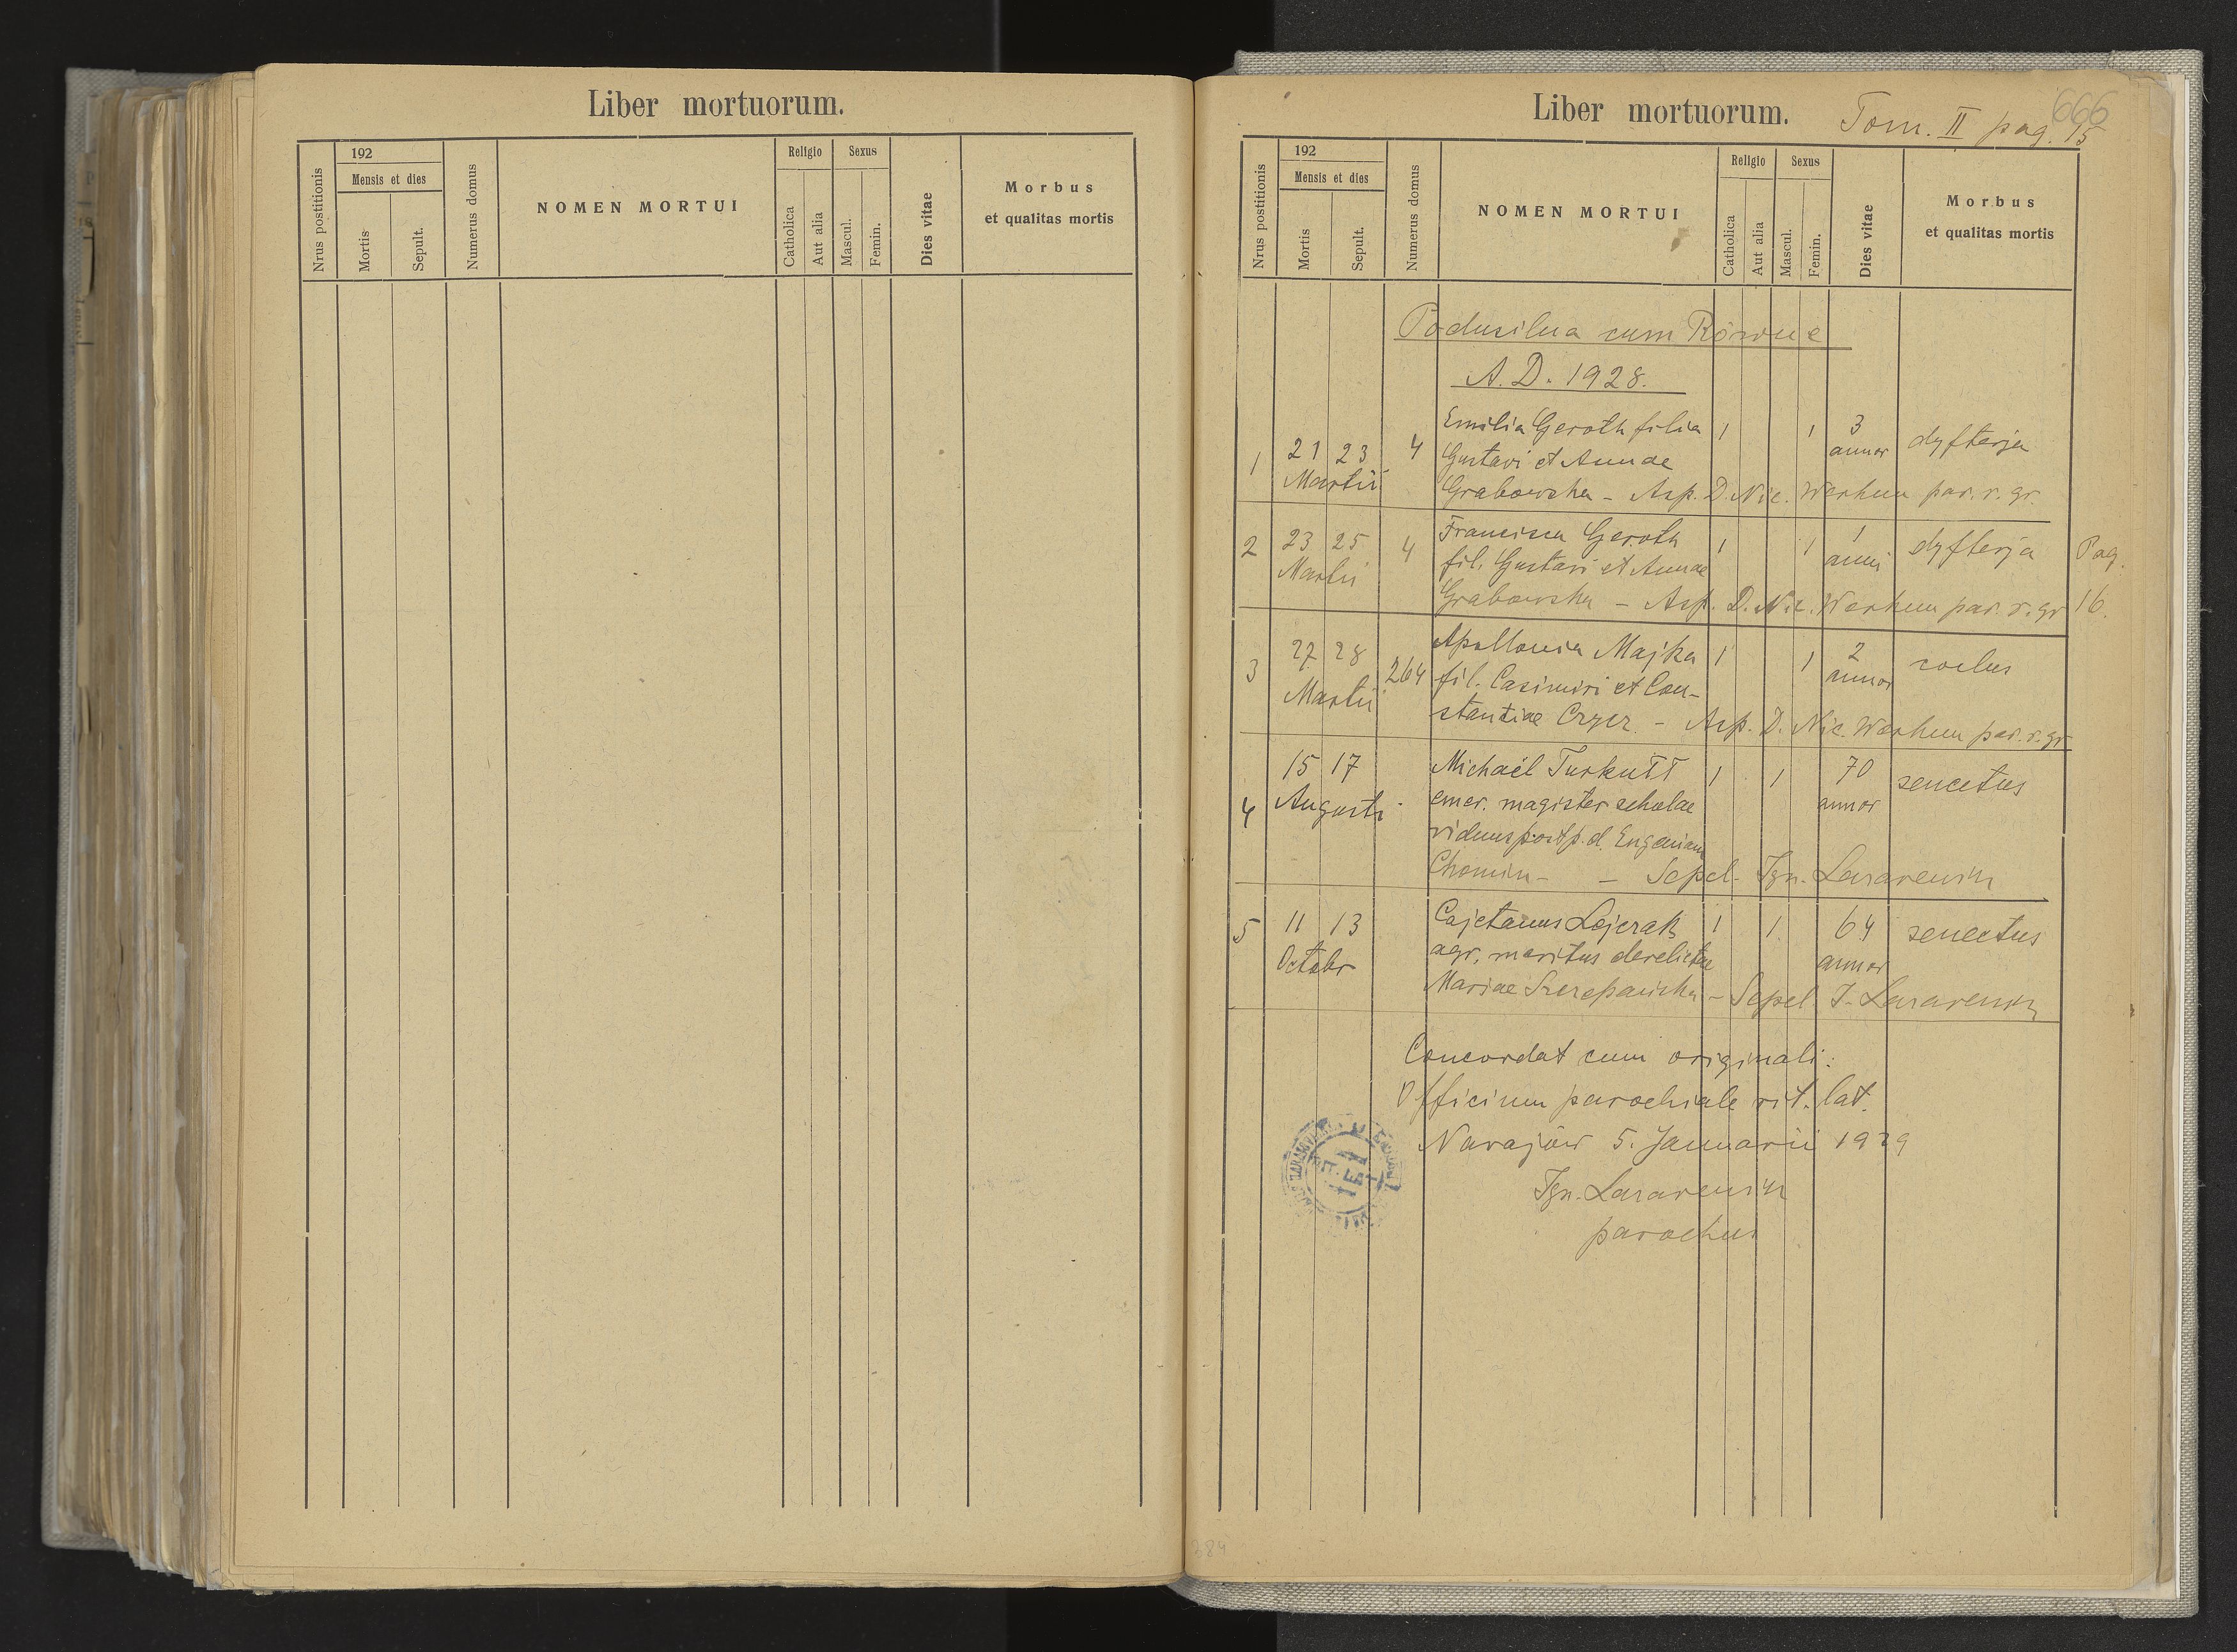 Liber mortuorum.
Nrus postitionis
192
Mensis et dies
Mortis
Sepult.
Numerus domus
NOMEN MORTUI
Religio
Catholica
Aut alia
Sexus
Mascul.
Femin.
Dies vitae
Morbus
et qualitas mortis
Liber mortuorum. Tom. II pag. 15
666
Nrus postitionis
192
Mensis et dies
Mortis
Sepult.
Numerus domus
NOMEN MORTUI
Religio
Catholica
Aut alia
Sexus
Mascul.
Femin.
Dies vitae
Morbus
et qualitas mortis
Podusilna cum Równe
A. D. 1928.
Emilia Geroth filia 1 1 3 dyfterja
1 21 23 4 Gustavi et Annae annor
Martii Grabowska - Asp. D. Nic. Werhun par. r. gr.
2 23 25 4 Francisca Geroth 1 1 1 dyfterja Pag.
Martii fil. Gustavi et Annae anni
Grabowska - Asp. D. Nic. Werhun par. r. gr 16.
27 28 Apollonia Majka 1 1 2
3 264 fil. Casimiri et Con- annor
Martii stantiae Czycz - Asp. D. Nic. Werhun par. r. gr
15 17 Michaël Turkutt 1 1 70 senectus
4 Augusti emer. magister scholae annor
viduus post p. d. Eugeniam
Chomin - - Sepel. Ign. Lazarewicz
5 11 13 Cajetanus Lejczak 1 1 64 senectus
Octobr agr. maritus derelictae annor
Mariae Szczepańska - Sepel. I. Lazarewicz
Concordat cum originali:
Officium parochiale rit. lat.
Narajów 5. Januarii 1929
Ign. Lazarewicz
parochus
RIT. LAT
384